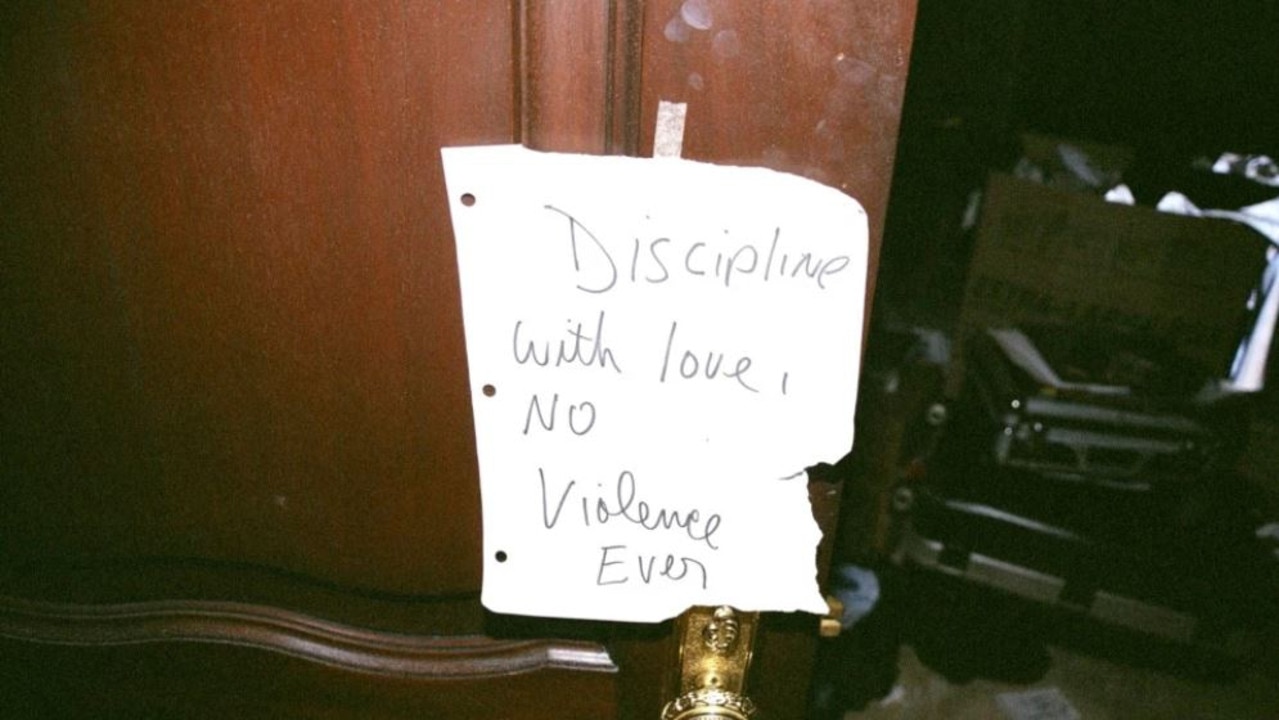 Discipline
with love,
NO
Violence
Ever